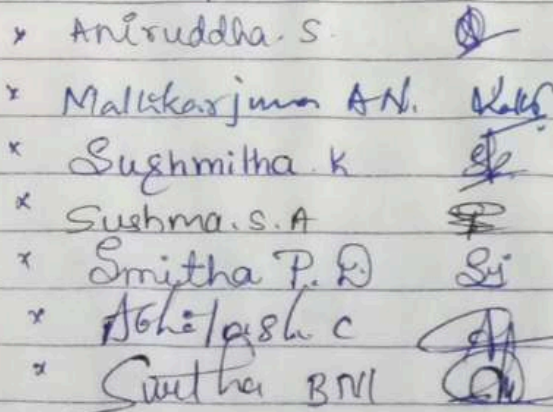 x Aniruddha. S.
x Mallikarjuna A N.
x Sushmitha. K
x Sushma. S. A
x Smitha P. D
x Abhilash. C
x BM